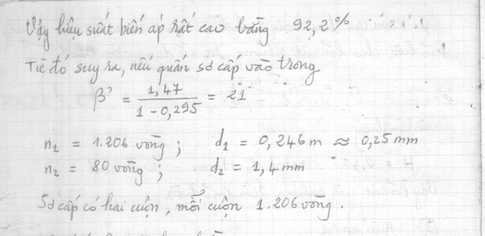 Vậy hiệu suất biến áp rất cao bằng 92,2%
Từ đó suy ra, nếu quấn sơ cấp vào trong
β' = 1,47 / (1 - 0,295) = 21
n₁ = 1.206 vòng ; d₁ = 0,246 m ≈ 0,25 mm
n₂ = 80 vòng ; d₂ = 1,4 mm
Sơ cấp có hai cuộn, mỗi cuộn 1.206 vòng.